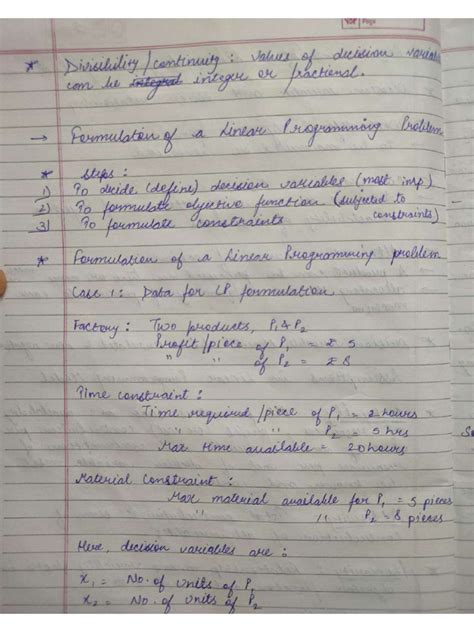 Page
* Divisibility/continuity: values of decision variable
can be integral integer or fractional.
→ Formulation of a Linear Programming Problem
* Steps:
1) To decide (define) decision variables (most imp)
2) To formulate objective function (subjected to
3) To formulate constraints constraints)
* Formulation of a Linear Programming problem
Case 1: Data for LP formulation
Factory: Two products, P₁ & P₂
Profit/piece of P₁ = ₹ 5
" " of P₂ = ₹ 8
Time constraint:
Time required/piece of P₁ = 2 hours
" " " P₂ = 5 hrs
Max time available = 20 hours
Material Constraint:
Max material available for P₁ = 5 pieces
" " P₂ = 8 pieces
Here, decision variables are:
x₁ = No. of units of P₁
x₂ = No. of units of P₂